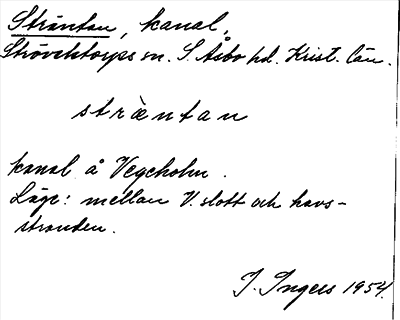 Sträntan, kanal.
Strövelstorps sn. S. Åsbo hd. Krist. län.
sträntan
kanal å Vegeholm.
Läge: mellan V. slott och havs-
stranden.
I. Ingers 1954.